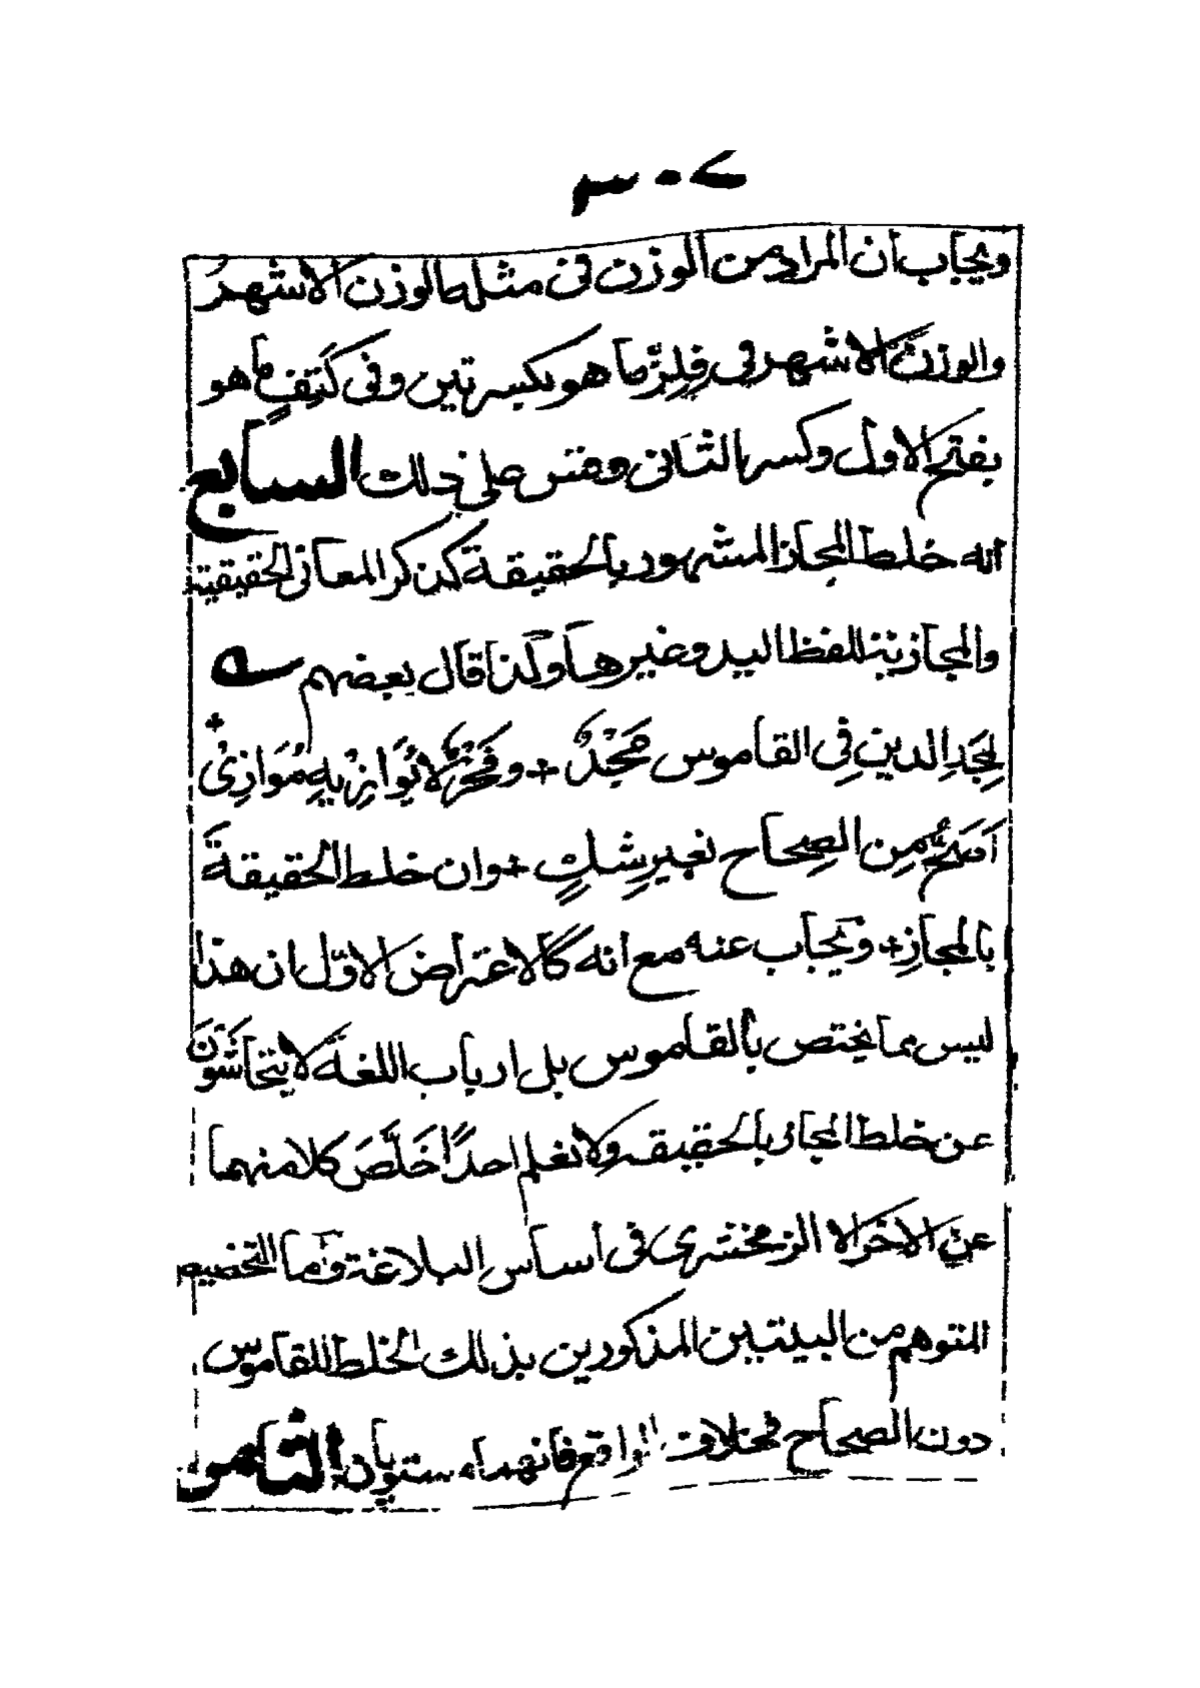 ٣٠٧
ويجاب ان المراد من الوزن فى مثله الوزن الاشهر
والوزن الاشهر فى فِلِزٍّ ما هو بكسرتين وفى كَتِفٍ ما هو
بفتح الاول وكسر الثانى وقس على ذلك السابع
انه خلط المجاز المشهور بالحقيقة كذكر المعانى الحقيقية
والمجازية للفظ اليد وغيرها وكذا قال بعضهم سه
لِمَجدِ الدينِ فِى القاموس مَجْدٌ + وفَخْرٌ لا يُوَازِيهِ مُوَازِىْ +
اَصَحُّ مِن الصِحاح بغيرِ شكٍ + وان خلط الحقيقةَ
بالمجازِ + ويجاب عنه مع انه كالاعتراض الاوّل ان هذا
ليس مما يختص بالقاموس بل ارباب اللغة لا يتحاشَوْنَ
عن خلط المجاز بالحقيقه ولا نعلم احدًا خَلَّصَ كلا منهما
عن الاخر الا الزمخشرى فى اساس البلاغة وَاما التخصيص
المتوهم من البيتين المذكورين بذلك الخلط للقاموس
دون الصحاح فخلاف الواقع فانهما مستويان الثامن